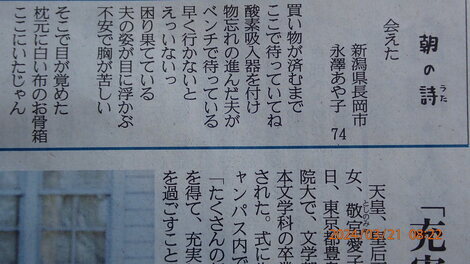 朝の詩
うた
会えた
新潟県長岡市
永澤あや子 74
買い物が済むまで
ここで待っていてね
酸素吸入器を付け
物忘れの進んだ夫が
ベンチで待っている
早く行かないと
えっいないっ
困り果てている
夫の姿が目に浮かぶ
不安で胸が苦しい
そこで目が覚めた
枕元に白い布のお骨箱
ここにいたじゃん
「充
天皇、皇后
女、敬宮愛子
としのみや
日、東京都豊
院大で、文学
本文学科の卒業
された。式に
ャンパス内で
「たくさんの
を得て、充実
を過ごすこと
08:22